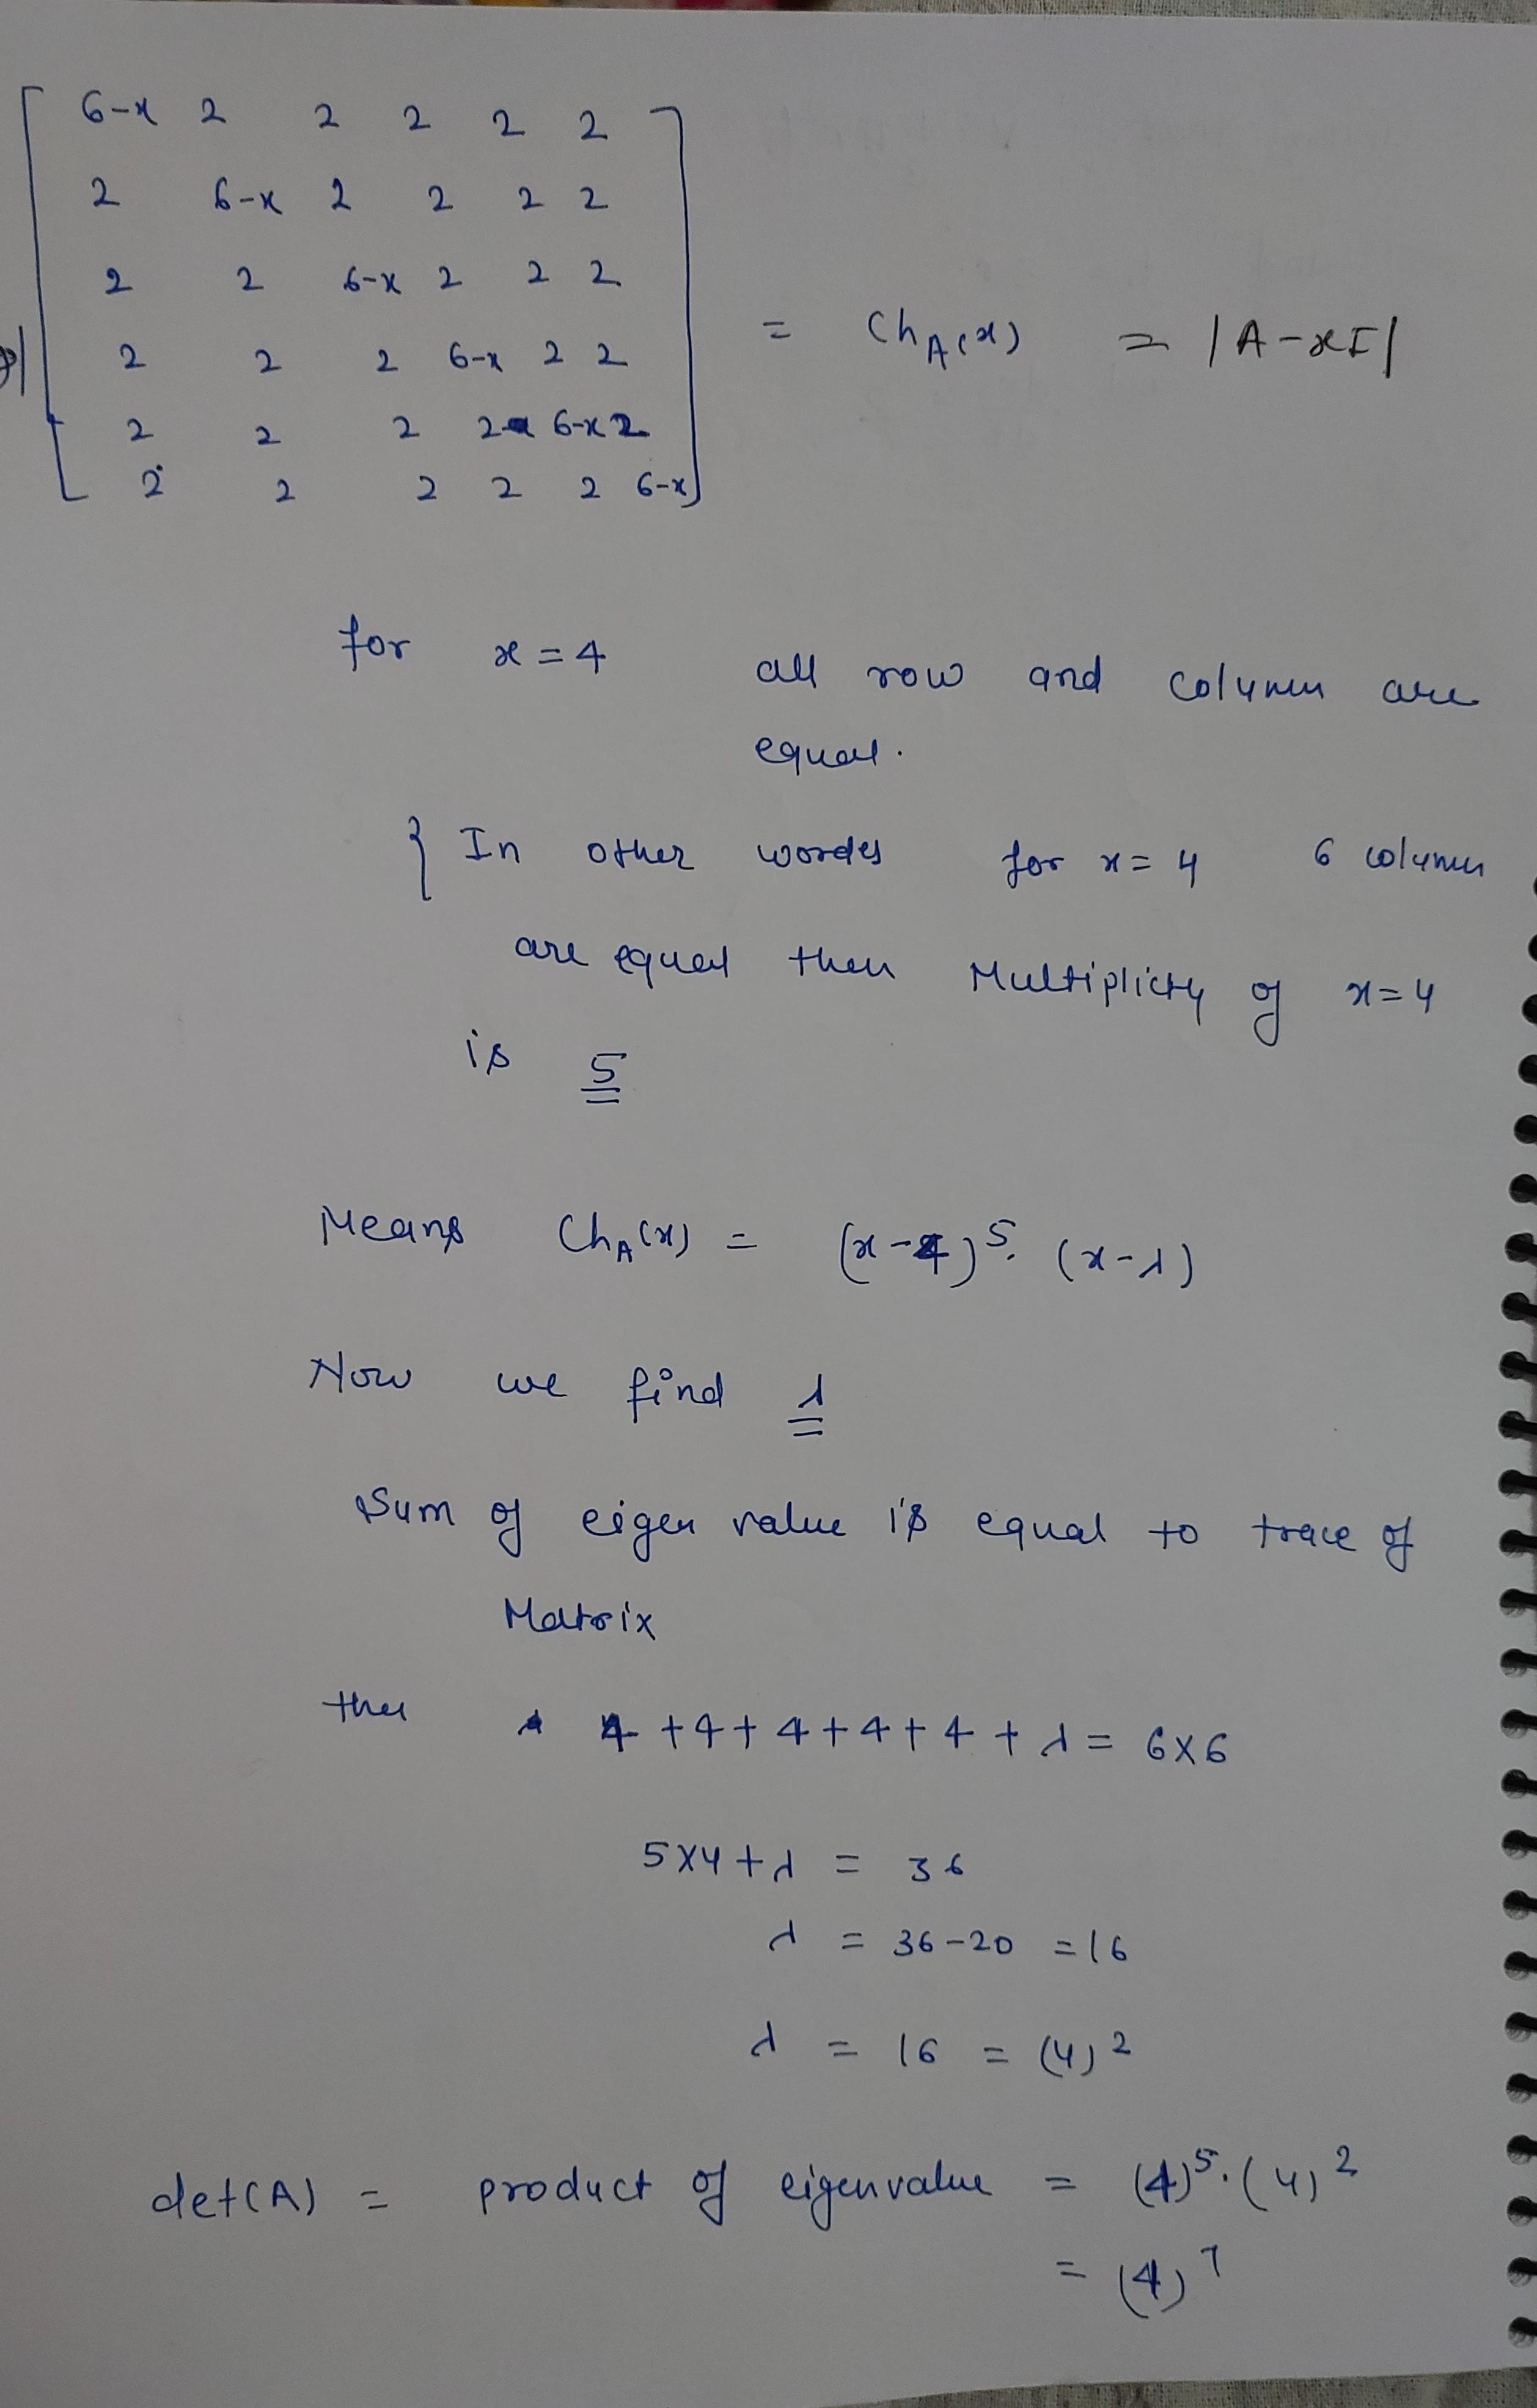 6-x 2 2 2 2 2
2 6-x 2 2 2 2
2 2 6-x 2 2 2
2 2 2 6-x 2 2 = Ch_A(x) = |A-xI|
2 2 2 2 6-x 2
2 2 2 2 2 6-x
for x=4 all row and column are
equal.
{ In other wordes for x=4 6 column
are equal then Multiplicity of x=4
is 5
Means Ch_A(x) = (x-4)^5. (x-λ)
Now we find λ
Sum of eigen value is equal to trace of
Matrix
then 4+4+4+4+4+λ = 6x6
5x4+λ = 36
λ = 36-20 =16
λ = 16 = (4)^2
det(A) = product of eigenvalue = (4)^5.(4)^2
= (4)^7